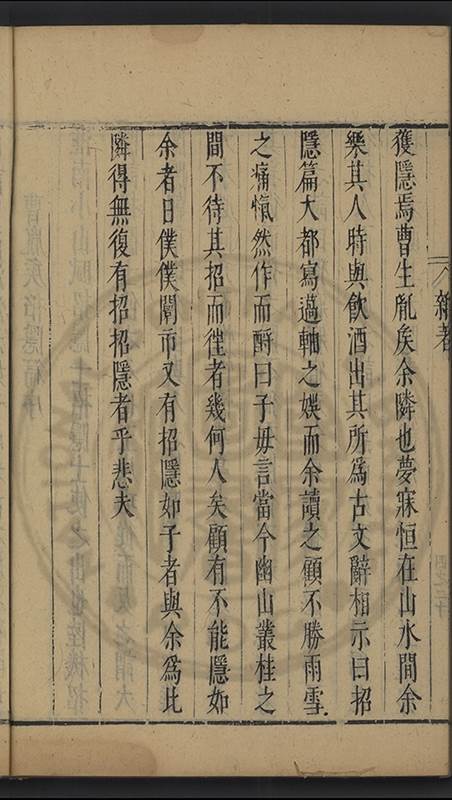 獲隱焉曹生胤矣余隣也夢寐恒在山水間余
樂其人時與飲酒出其所爲古文辭相示曰招
隱篇大都寫薖軸之娛而余讀之顧不勝雨雪
之痛愾然作而酹曰子毋言當今幽山叢桂之
間不待其招而徃者幾何人矣顧有不能隱如
余者日僕僕闤市又有招隱如子者與余爲比
隣得無復有招招隱者乎悲夫